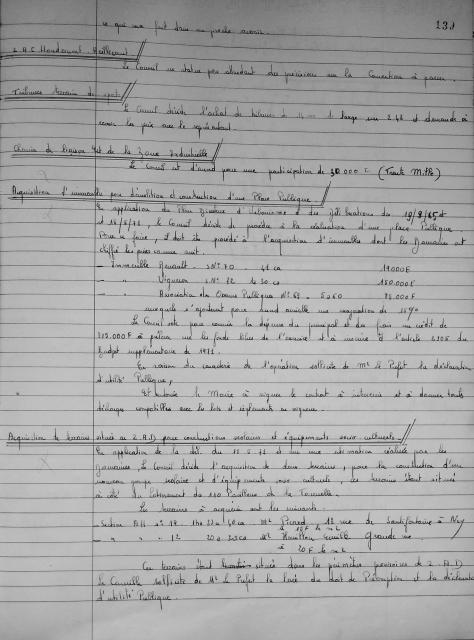 ce qui sera fait dans un proche avenir.
239
Z.A.C. Houdemont - Heillecourt
Le Conseil ne statue pas attendant des précisions sur la Convention à passer.
Tribunes terrain de sports
Le Conseil décide l'achat de tribunes de 14 m de large sur 2,48 et demande à
revoir les prix avec le représentant.
Chemin de liaison Est de la Zone Industrielle
Le Conseil est d'accord pour une participation de 30.000 F (Trente Mille)
Acquisitions d'immeubles pour démolition et construction d'une Place Publique.
En application du Plan Directeur d'Urbanisme et des délibérations du 19/8/65 et
, le Conseil décide de procéder à la réalisation d'une place Publique
Pour ce faire, il doit être procédé à l'acquisition d'immeubles dont les Domaines ont
chiffré les prix comme suit.
- Immeuble Renault. N° 70. ca 19000F
- Vigneron N° 72 ca 150.000F
- Association des Oeuvres Publiques N° 69. 5a60 95.000F
auxquels s'ajoutent pour accord amiable une majoration de %
Le Conseil vote pour couvrir la dépense du principal et des frais un crédit de
.000F à prélever sur les fonds libres de l'exercice et à inscrire à l'article du
Budget supplémentaire de 1971.
En raison du caractère de l'opération sollicite de Mr le Préfet la déclaration
d'utilité Publique,
Et autorise le Maire à signer le contrat à intervenir et à donner toutes
décharges compatibles avec les lois et règlements en vigueur.
Acquisition de terrains situés en Z.A.D pour constructions scolaires et équipements socio-culturels.
En application de la dél. du 5.71 et sur une estimation réalisée par les
Domaines, le Conseil décide l'acquisition de deux terrains, pour la construction d'un
nouveau groupe scolaire et d'équipements socio culturels, ces terrains étant situés
à côté du lotissement des 110 Pavillons de la Tournelle.
Les terrains à acquérir sont les suivants.
- Section AH n° 19. ca Mr Picard 12 rue de Saintifontaine à Ncy
à 15F le m2
- " " " 12 ca Mr Houillon Grande rue
à 20F le m2
Ces terrains étant situés dans les périmètres provisoires de Z.A.D
Le Conseil sollicite de Mr le Préfet la levée du droit de Préemption et la déclaration
d'utilité Publique.